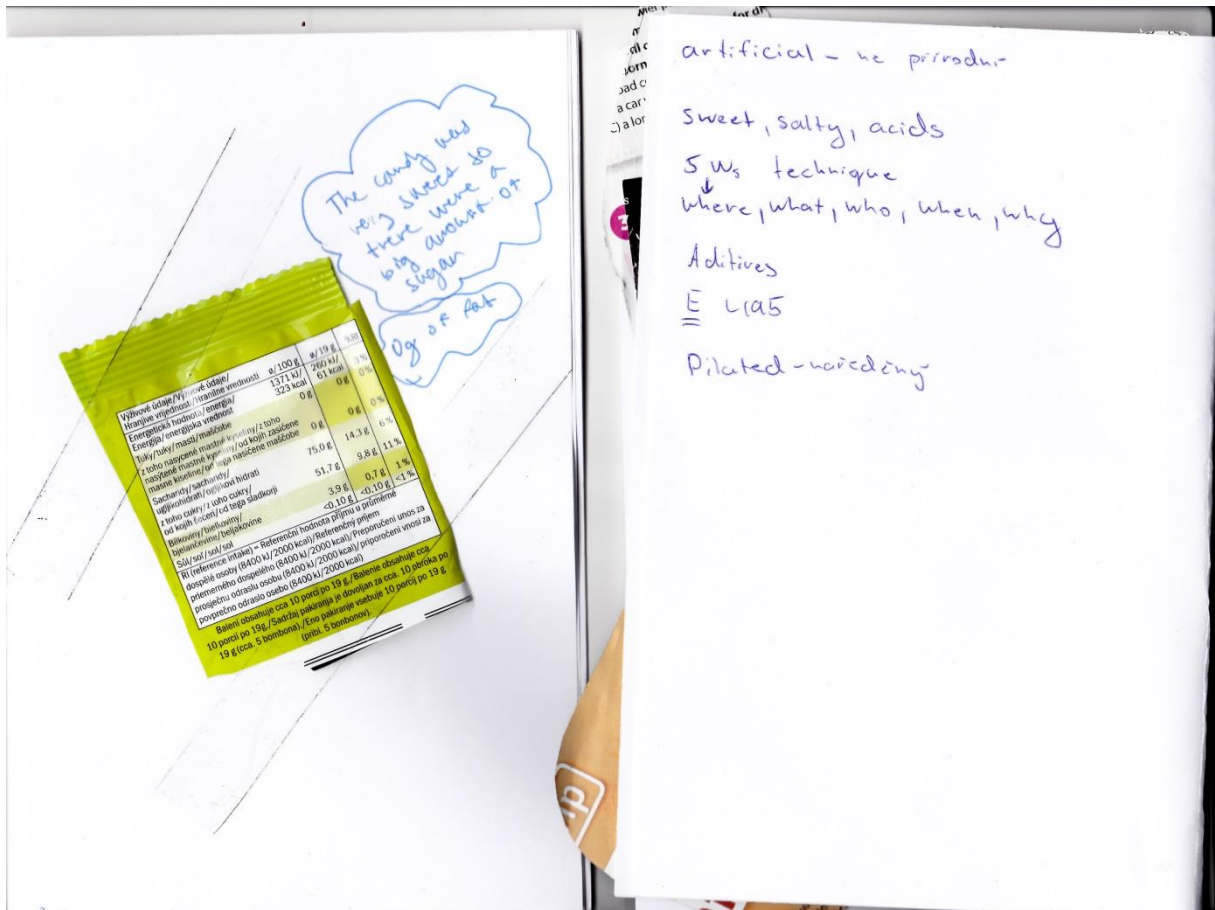 The candy was
very sweet so
there were a
big amount of
sugar
0g of fat
Výživové údaje/Výživové údaje/
Hranjive vrijednost/Hranilne vrednosti ø/100 g ø/19 g %RI
Energetická hodnota/energia/ 1371 kJ/ 260 kJ/ 3%
Energija/energijska vrednost 323 kcal 61 kcal
Tuky/tuky/masti/maščobe 0 g 0 g 0%
z toho nasycené mastné kyseliny/z toho 0 g 0 g 0%
nasýtené mastné kyseliny/od kojih zasićene
masne kiseline/od tega nasičene maščobe
Sacharidy/sacharidy/ 75,0 g 14,3 g 6%
ugljikohidrati/ogljikovi hidrati
z toho cukry/z toho cukry/ 51,7 g 9,8 g 11%
od kojih šećeri/od tega sladkorji
Bílkoviny/bielkoviny/ 3,9 g 0,7 g 1%
bjelančevine/beljakovine
Sůl/soľ/sol/sol <0,10 g <0,10 g <1%
RI (reference intake) = Referenční hodnota příjmu u průměrné
dospělé osoby (8400 kJ/2000 kcal)/Referenčný príjem
priemerného dospelého (8400 kJ/2000 kcal)/Preporučeni unos za
prosječnu odraslu osobu (8400 kJ/2000 kcal)/priporočeni vnosi za
povprečno odraslo osebo (8400 kJ/2000 kcal)
Balení obsahuje cca 10 porcí po 19 g./Balenie obsahuje cca
10 porcií po 19g./Sadržaj pakiranja je dovoljan za cca. 10 obroka po
19 g (cca. 5 bombona)./Eno pakiranje vsebuje 10 porcij po 19 g
(pribl. 5 bonbonov).
for dr
a car
C) a lor
3
artificial - ne přírodní
sweet, salty, acids
5 Ws technique
where, what, who, when, why
Aditives
E 4195
Pilated - naředěný